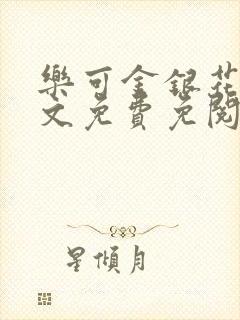 樂可金銀花
文免費免閱
星傾月